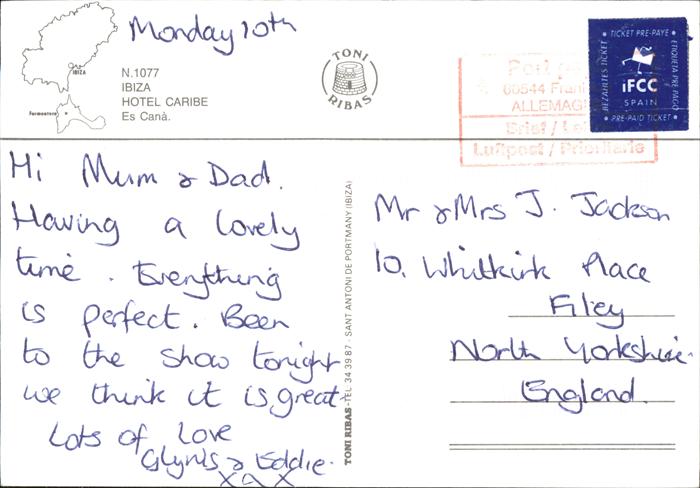 Monday 10th
IBIZA
Formentera
N.1077
IBIZA
HOTEL CARIBE
Es Canà.
TONI
RIBAS
Port
60544
ALLEMAG
Brief /
Luftpost / Prioritaire
TICKET PRE-PAYE
BEZAHLTES TICKET
ETIQUETA PRE PAGO
iFCC
SPAIN
PRE-PAID TICKET
Hi Mum & Dad.
Having a lovely
time. Everything
is perfect. Been
to the show tonight
we think it is great
Lots of Love
Glynis & Eddie.
xxx
TONI RIBAS-TEL 34 39 87 - SANT ANTONI DE PORTMANY (IBIZA)
Mr & Mrs J. Jackson
10. Whitkirk Place
Filey
North Yorkshire
England.